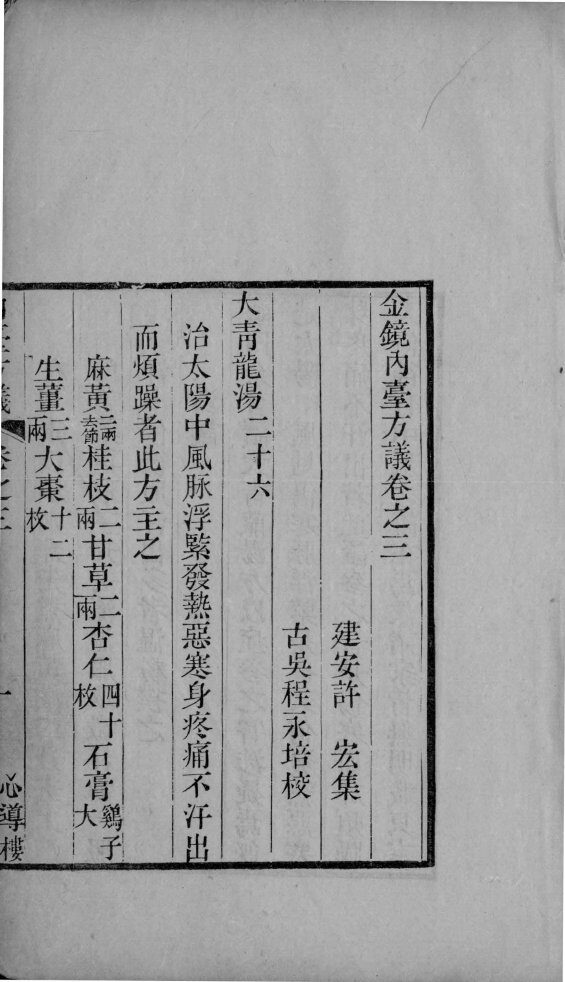 金鏡內臺方議卷之三
建安許　宏集
古吳程永培校
大青龍湯 二十六
治太陽中風脉浮緊發熱惡寒身疼痛不汗出
而煩躁者此方主之
麻黃 三兩去節 桂枝 二兩 甘草 二兩 杏仁 四十枚 石膏 鷄子大
生薑 三兩 大棗 十二枚
方議 卷之三 一 心導樓